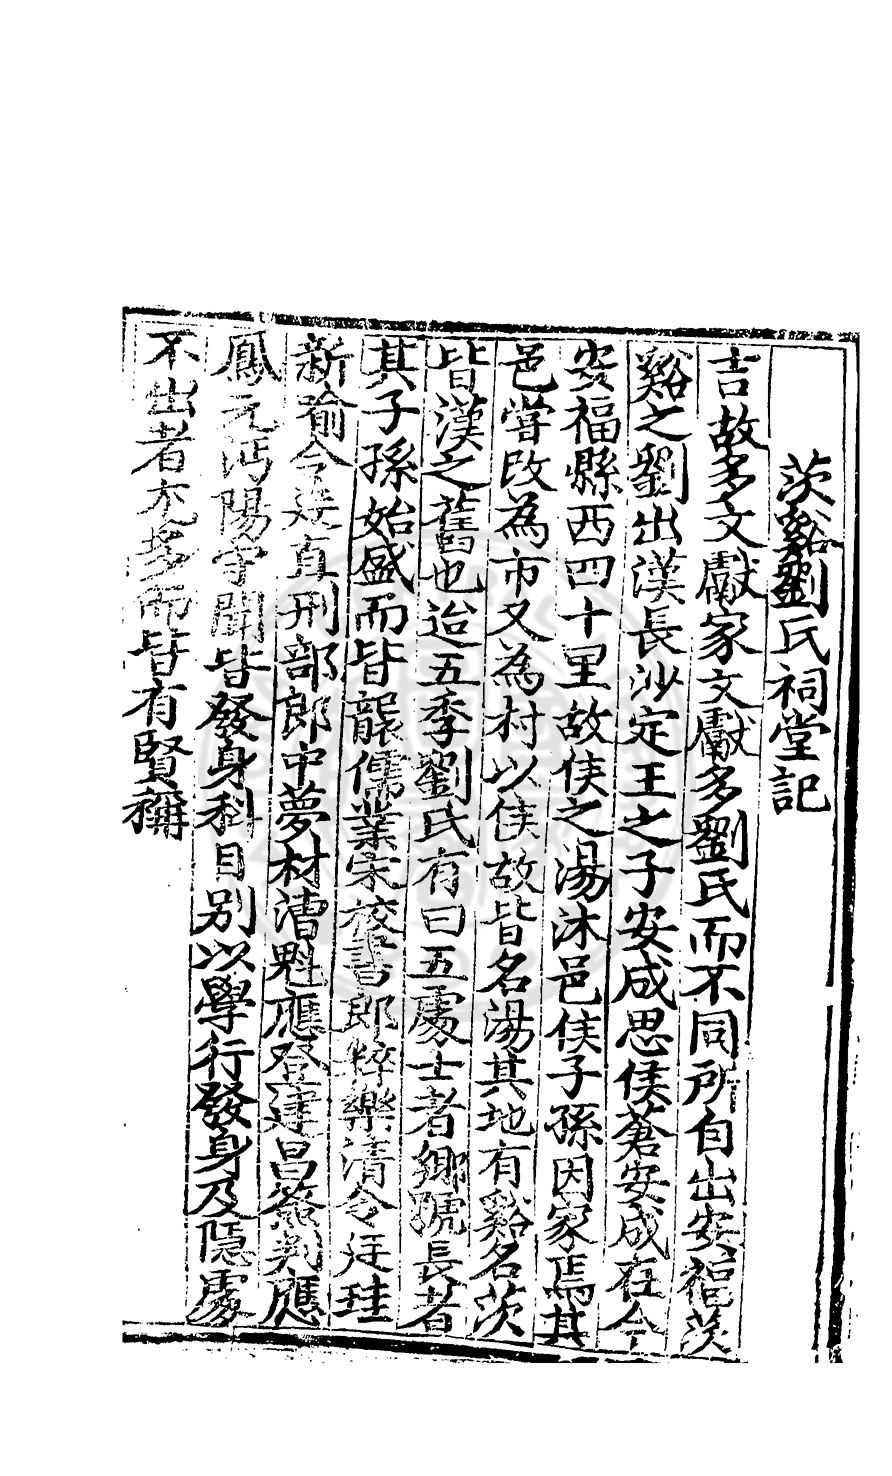 茨谿劉氏祠堂記
吉故多文獻家文獻多劉氏而不同所自出安福茨
谿之劉出漢長沙定王之子安成思侯蒼安成在今
安福縣西四十里故侯之湯沐邑侯子孫因家焉其
邑嘗改為市又為村以侯故皆名湯其地有谿名茨
皆漢之舊也迨五季劉氏有曰五處士者鄉號長者
其子孫始盛而皆襲儒業宋校書郎粹樂清令廷珪
新喻令廷直刑部郎中夢材漕魁應登建昌簽判應
鳳元沔陽守聞皆發身科目別以學行發身及隱處
不出者尤多而皆有賢稱